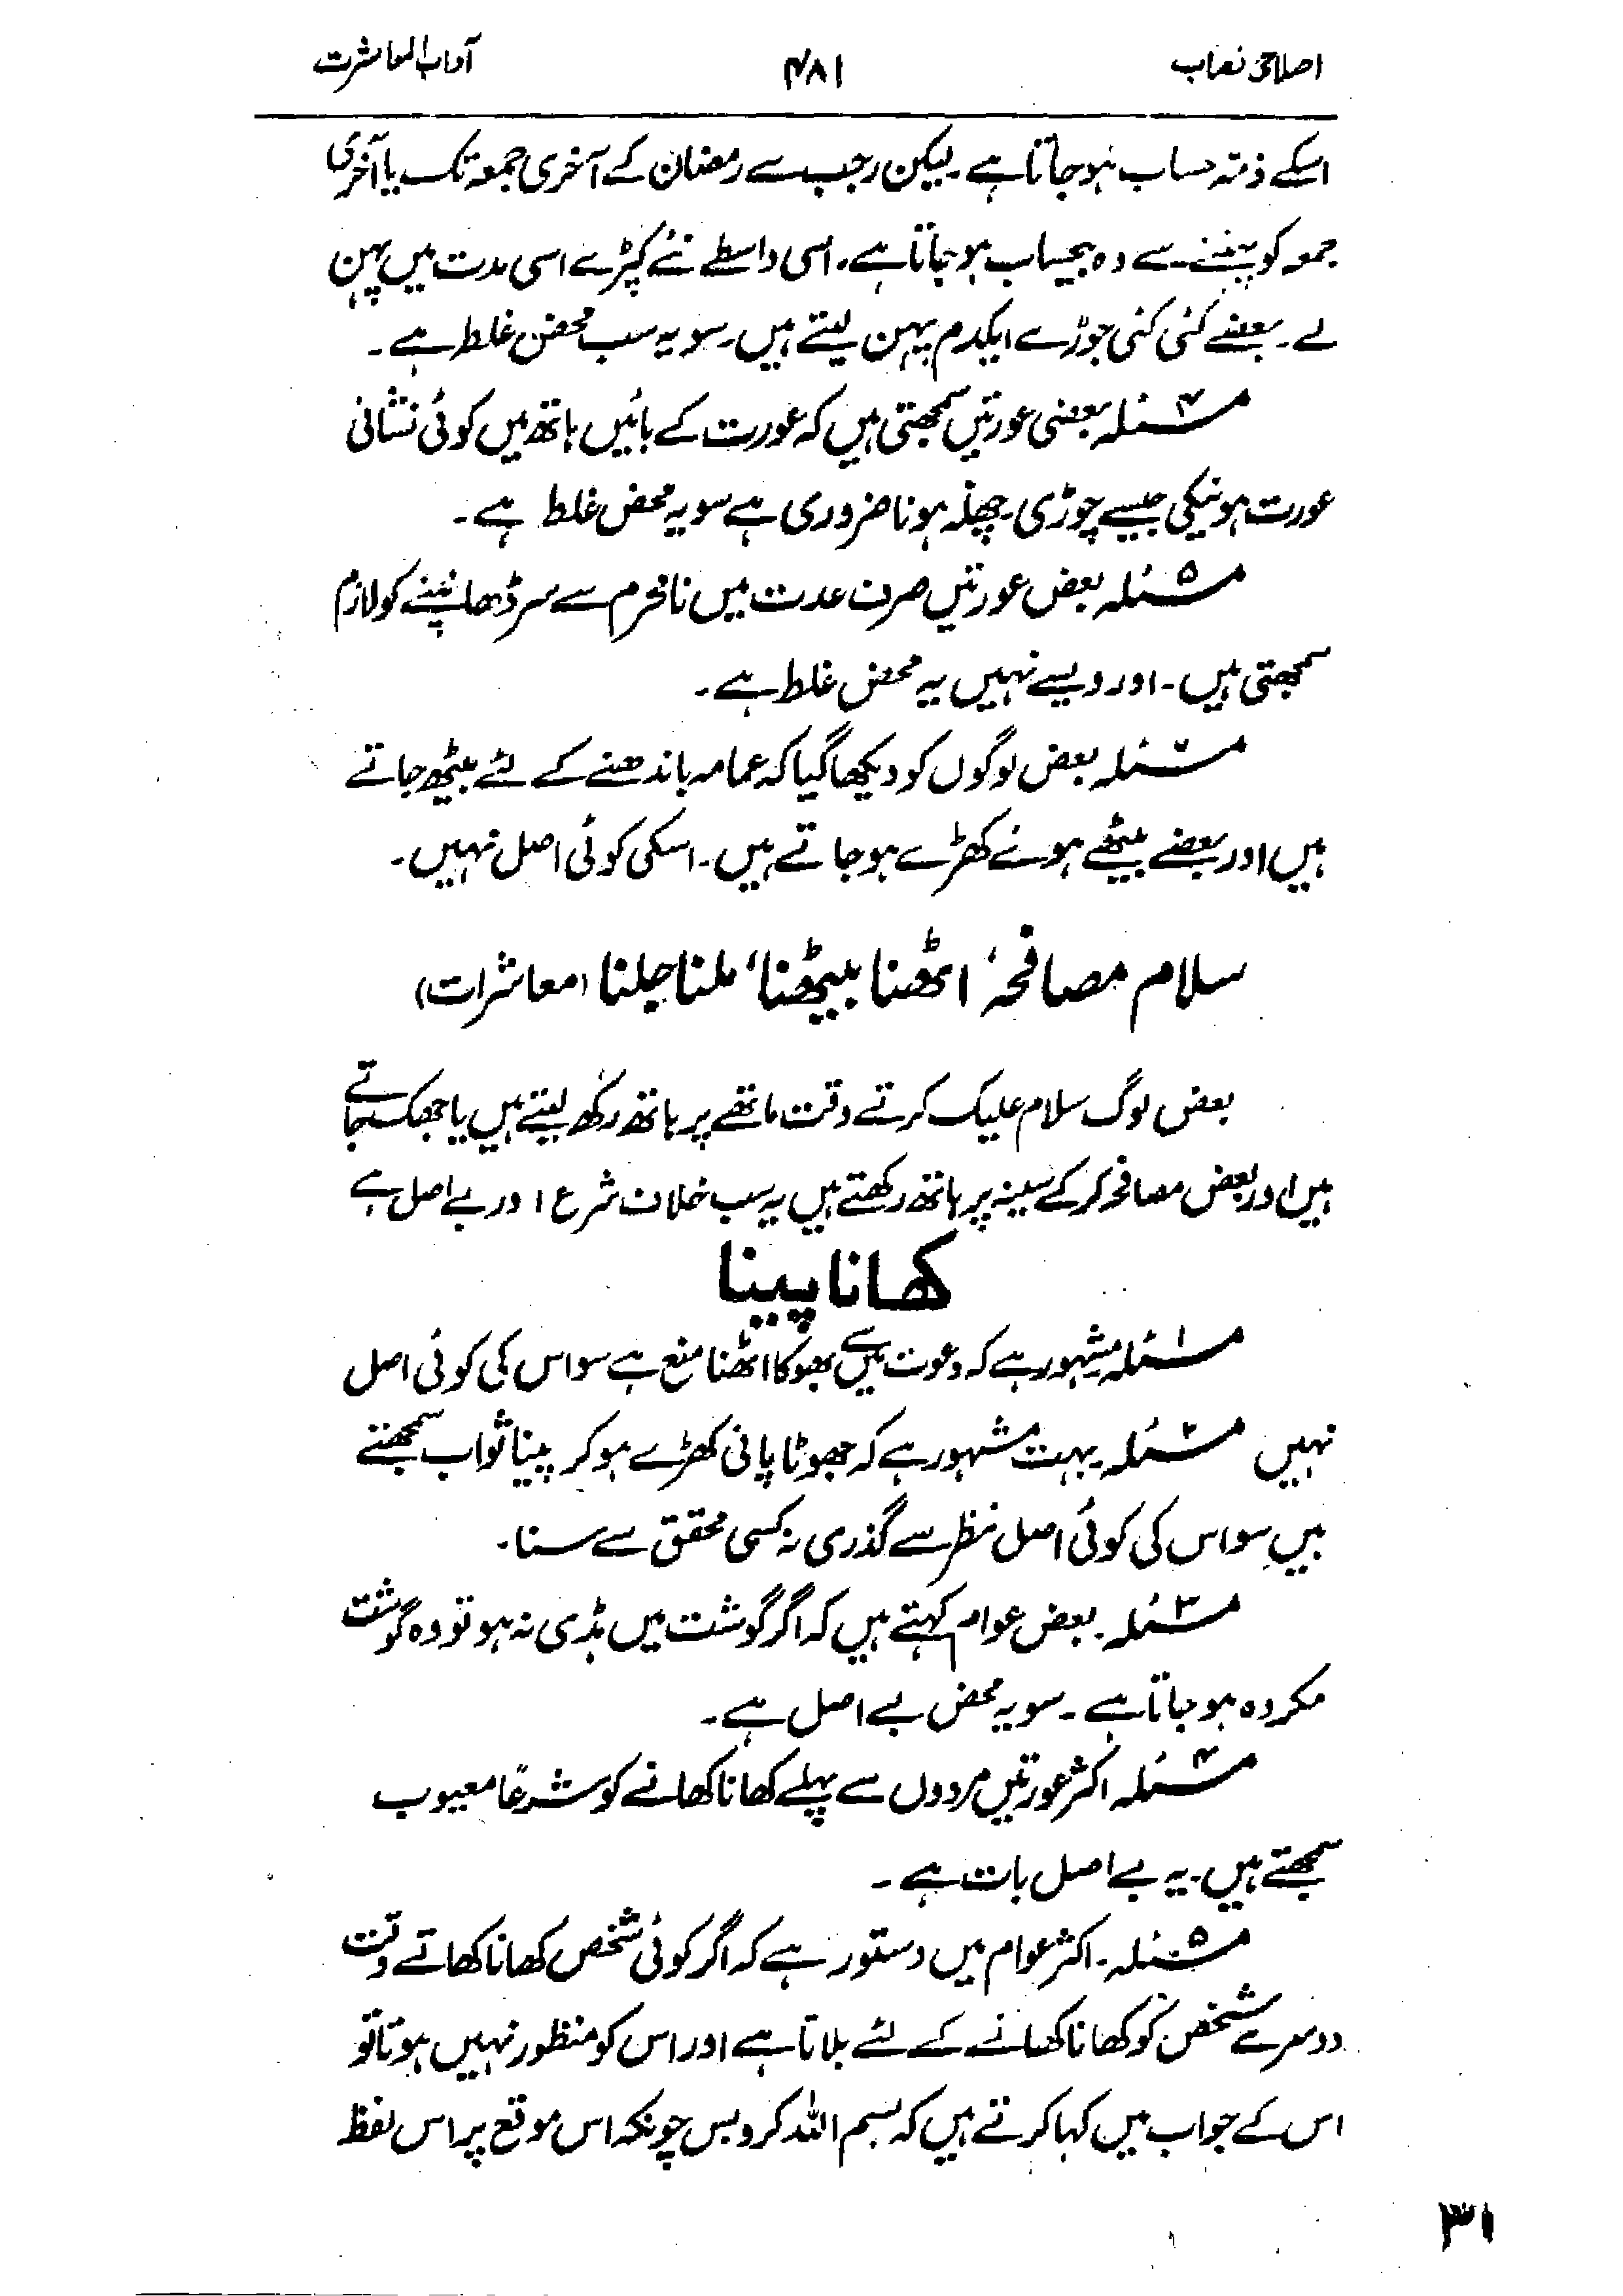 اصلاحی نصاب ۴۸۱ آداب المعاشرت
اسکے ذمہ حساب ہوجاتا ہے۔ لیکن رجب سے رمضان کے آخری جمعہ تک یا آخری
جمعہ کو پہننے سے وہ بیحساب ہوجاتا ہے۔ اسی واسطے نئے کپڑے اسی مدت میں پہن
لے۔ بعضے کئی کئی جوڑے ایکدم پہن لیتے ہیں۔ سو یہ سب محض غلط ہے۔
مسئلہ ۴ بعضی عورتیں سمجھتی ہیں کہ عورت کے بائیں ہاتھ میں کوئی نشانی
عورت ہونیکی جیسے چوڑی چھلہ ہونا ضروری ہے سو یہ محض غلط ہے۔
مسئلہ ۵ بعض عورتیں صرف عدت میں نامحرم سے سر ڈھانپنے کو لازم
سمجھتی ہیں۔ اور ویسے نہیں یہ محض غلط ہے۔
مسئلہ ۶ بعض لوگوں کو دیکھا گیا کہ عمامہ باندھنے کے لئے بیٹھ جاتے
ہیں اور بعضے بیٹھے ہوئے کھڑے ہوجاتے ہیں۔ اسکی کوئی اصل نہیں۔
سلام مصافحہ، اٹھنا بیٹھنا، ملنا جلنا (معاشرات)
بعض لوگ سلام علیک کرتے وقت ماتھے پر ہاتھ رکھ لیتے ہیں یا جھک جاتے
ہیں اور بعض مصافحہ کرکے سینہ پر ہاتھ رکھتے ہیں یہ سب خلاف شرع اور بے اصل ہے
کھانا پینا
مسئلہ ۱ مشہور ہے کہ دعوت میں سے بھوکا اٹھنا منع ہے سو اس کی کوئی اصل
نہیں مسئلہ ۲ یہ بہت مشہور ہے کہ جھوٹا پانی کھڑے ہوکر پینا ثواب سمجھتے
ہیں سو اس کی کوئی اصل نظر سے گذری نہ کسی محقق سے سنا۔
مسئلہ ۳۔ بعض عوام کہتے ہیں کہ اگر گوشت میں ہڈی نہ ہو تو وہ گوشت
مکروہ ہوجاتا ہے۔ سو یہ محض بے اصل ہے۔
مسئلہ ۴ اکثر عورتیں مردوں سے پہلے کھانا کھانے کو شرعًا معیوب
سمجھتے ہیں۔ یہ بے اصل بات ہے۔
مسئلہ ۵۔ اکثر عوام میں دستور ہے کہ اگر کوئی شخص کھانا کھاتے وقت
دوسرے شخص کو کھانا کھانے کے لئے بلاتا ہے اور اس کو منظور نہیں ہوتا تو
اس کے جواب میں کہا کرتے ہیں کہ بسم اللہ کرو بس چونکہ اس موقع پر اس لفظ
۳۱